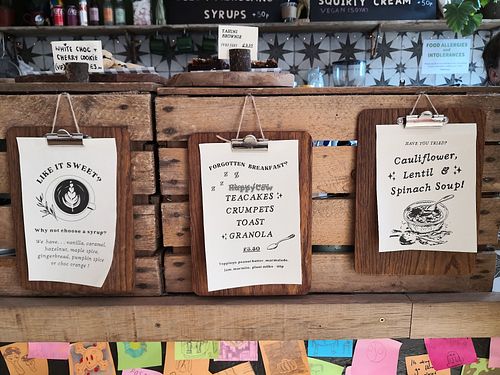 SYRUPS • +50p
SQUIRTY CREAM
VEGAN (50p)
WHITE CHOC +
CHERRY COOKIE
(VF) £3.
TAHINI
BROWNIE
FOOD ALLERGIES
AND
INTOLERANCES
LIKE IT SWEET?
Why not choose a syrup?
We have... vanilla, caramel,
hazelnut, maple spice,
gingerbread, pumpkin spice
or choc orange!
FORGOTTEN BREAKFAST?
z z z
HappyCow
TEACAKES
CRUMPETS
TOAST
GRANOLA
£2.50
toppings: peanut butter, marmalade,
jam, marmite, plant milks
HAVE YOU TRIED?
Cauliflower,
Lentil &
Spinach Soup!